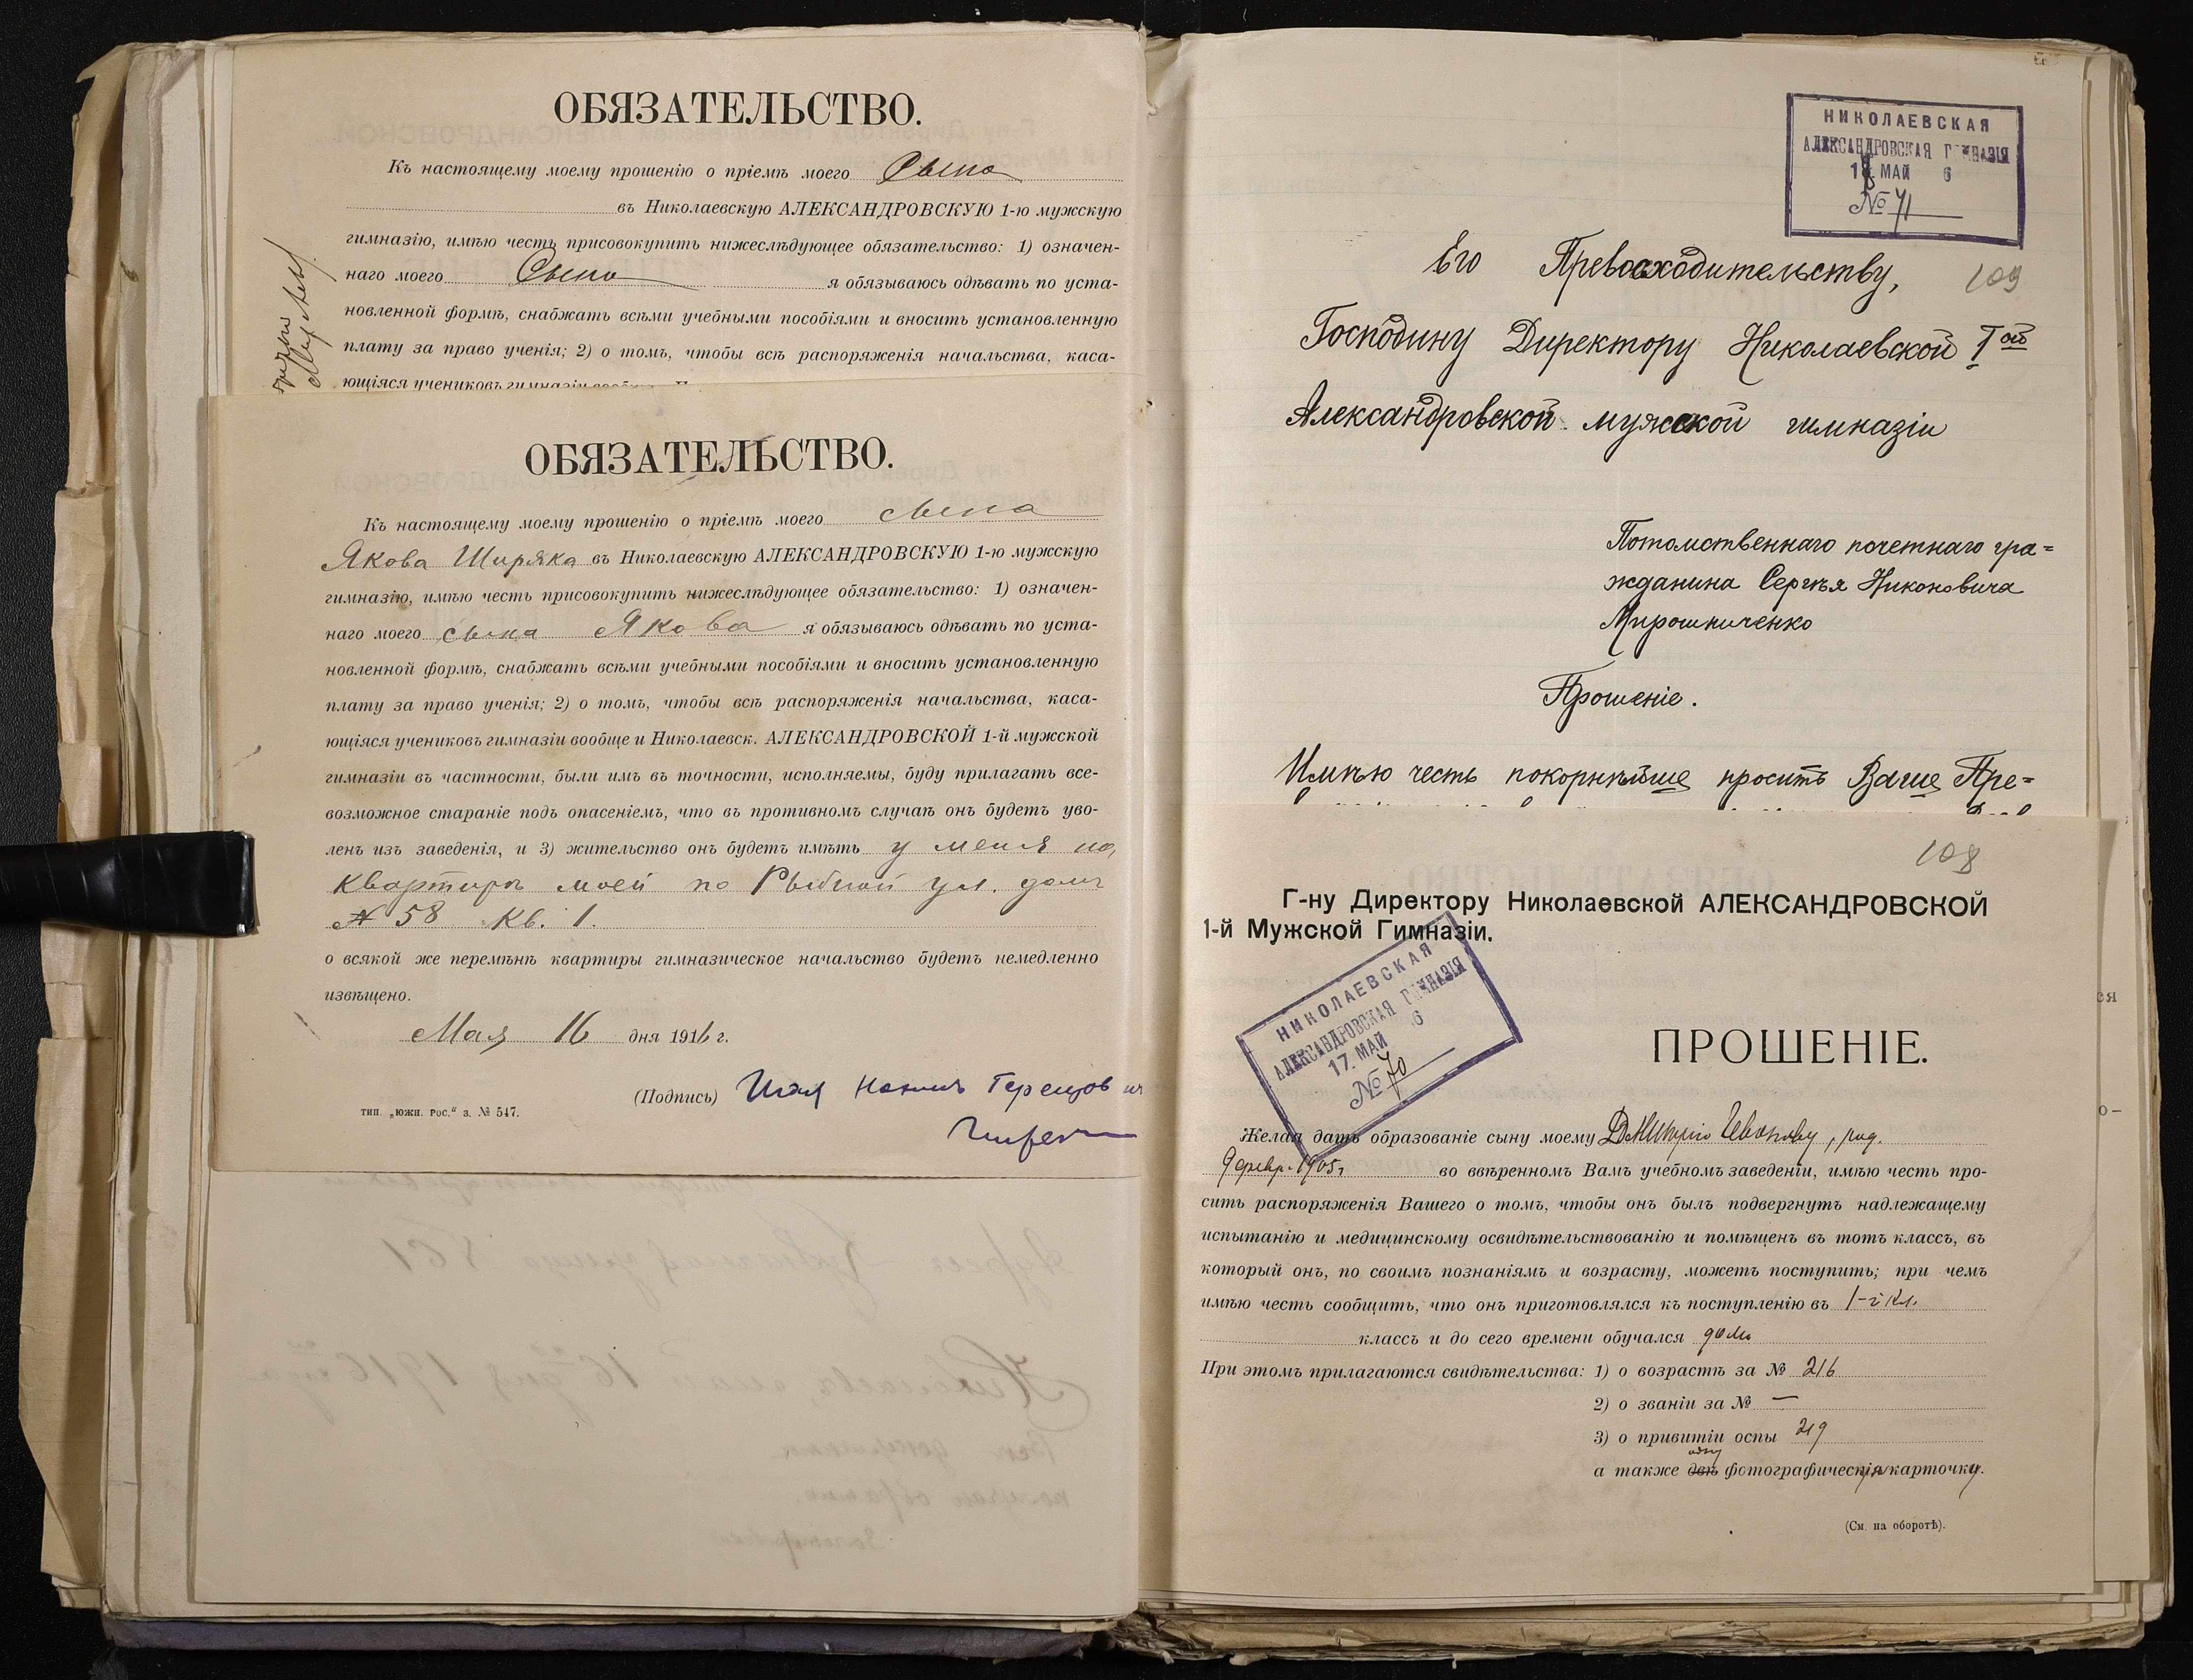 ОБЯЗАТЕЛЬСТВО.
Къ настоящему моему прошенію о пріемѣ моего Сына
въ Николаевскую АЛЕКСАНДРОВСКУЮ 1-ю мужскую
гимназію, имѣю честь присовокупить нижеслѣдующее обязательство: 1) означен-
наго моего Сына я обязываюсь одѣвать по уста-
новленной формѣ, снабжать всѣми учебными пособіями и вносить установленную
плату за право ученія; 2) о томъ, чтобы всѣ распоряженія начальства, каса-
ющіяся учениковъ гимназіи
ОБЯЗАТЕЛЬСТВО.
Къ настоящему моему прошенію о пріемѣ моего сына
Якова Ширяка въ Николаевскую АЛЕКСАНДРОВСКУЮ 1-ю мужскую
гимназію, имѣю честь присовокупить нижеслѣдующее обязательство: 1) означен-
наго моего сына Якова я обязываюсь одѣвать по уста-
новленной формѣ, снабжать всѣми учебными пособіями и вносить установленную
плату за право ученія; 2) о томъ, чтобы всѣ распоряженія начальства, каса-
ющіяся учениковъ гимназіи вообще и Николаевск. АЛЕКСАНДРОВСКОЙ 1-й мужской
гимназіи въ частности, были имъ въ точности, исполняемы, буду прилагать все-
возможное стараніе подъ опасеніемъ, что въ противномъ случаѣ онъ будетъ уво-
ленъ изъ заведенія, и 3) жительство онъ будетъ имѣть у меня на
квартирѣ моей по Рыбной ул. домъ
№ 58 кв. 1.
о всякой же перемѣнѣ квартиры гимназическое начальство будетъ немедленно
извѣщено.
Мая 16 дня 1916 г.
(Подпись)
тип. „южн. рос.“ з. № 547.
НИКОЛАЕВСКАЯ
АЛЕКСАНДРОВСКАЯ ГИМНАЗІЯ
МАЙ 6
№ 71
109
Его Превосходительству,
Господину Директору Николаевской 1ой
Александровской мужской гимназіи
Потомственнаго почетнаго гра=
жданина Сергѣя Никоновича
Мирошниченко
Прошеніе.
Имѣю честь покорнѣйше просить Ваше Пре=
108
Г-ну Директору Николаевской АЛЕКСАНДРОВСКОЙ
1-й Мужской Гимназіи.
НИКОЛАЕВСКАЯ
АЛЕКСАНДРОВСКАЯ ГИМНАЗІЯ
17. МАЙ 6
№ 70
ПРОШЕНІЕ.
Желая дать образованіе сыну моему Дмитрію Иванову, род.
9 февр. 1905 г. во ввѣренномъ Вамъ учебномъ заведеніи, имѣю честь про-
сить распоряженія Вашего о томъ, чтобы онъ былъ подвергнутъ надлежащему
испытанію и медицинскому освидѣтельствованію и помѣщенъ въ тотъ классъ, въ
который онъ, по своимъ познаніямъ и возрасту, можетъ поступить; при чемъ
имѣю честь сообщить, что онъ приготовлялся къ поступленію въ 1-й кл.
классъ и до сего времени обучался дома
При этомъ прилагаются свидѣтельства: 1) о возрастѣ за № 216
2) о званіи за № —
3) о привитіи оспы 219
а также одну фотографическую карточку.
(См. на оборотѣ).